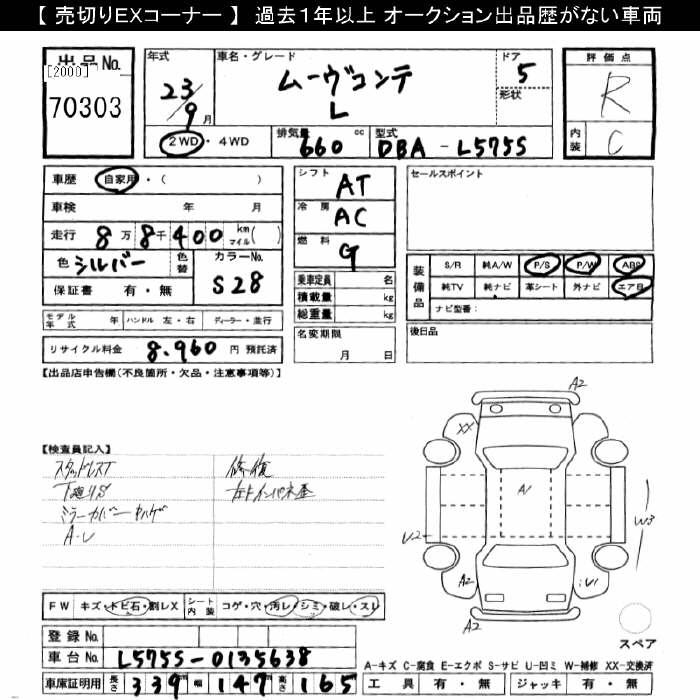 【 売切りEXコーナー 】 過去1年以上 オークション出品歴がない車両
出品No.
[2000]
70303
年式
23/9月
車名・グレード
ムーヴコンテ
L
ドア
5
形状
評価点
R
内装
C
2WD・4WD
排気量
660 cc
型式
DBA - L575S
車歴 自家用・( )
車検 年 月
走行 8万8千400 km マイル( )
色 シルバー 色替 カラーNo. S28
保証書 有・無
シフト AT
冷房 AC
燃料 G
乗車定員 名
積載量 kg
総重量 kg
名変期限
月 日
セールスポイント
装備品
S/R 純A/W P/S P/W ABS
純TV 純ナビ 革シート 外ナビ エアB
ナビ型番：
後日品
モデル年式 年 ハンドル 左・右 ディーラー・並行
リサイクル料金 8.960 円 預託済
【出品店申告欄(不良箇所・欠品・注意事項等)】
【検査員記入】
スタッドレスT
下廻りS
ミラーカバーキハゲ
A-U
修復
A2
XX
A1
U2
W3
A2
U1
A2
FW キズ・トビ石・割レX シート内装 コゲ・穴・汚レ・シミ・破レ・スレ
登録No.
車台No. L575S-0135638
車庫証明用 長さ 339 幅 147 高さ 165
スペア
A-キズ C-腐食 E-エクボ S-サビ U-凹ミ W-補修 XX-交換済
工具 有・無 ジャッキ 有・無